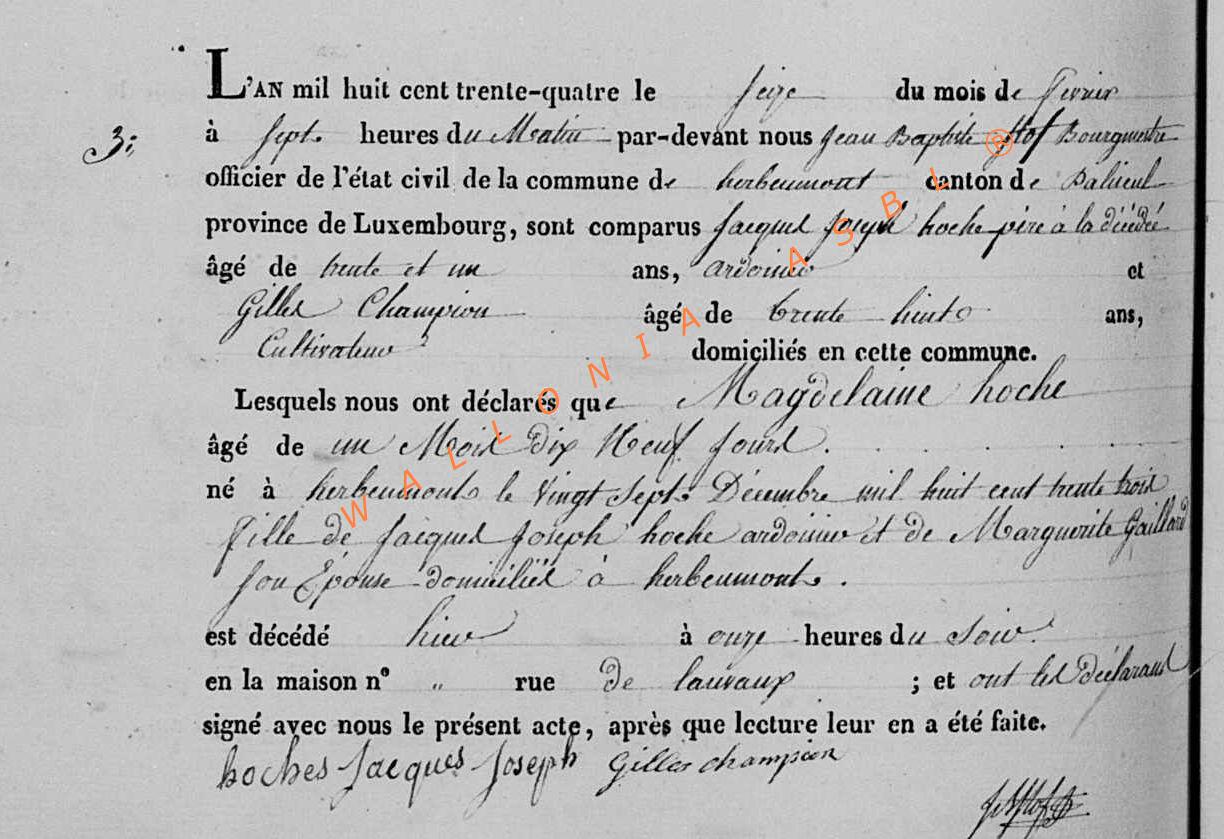 L'AN mil huit cent trente-quatre le seize du mois de fevrier
3: à sept heures du Matin par-devant nous Jean Baptiste Bourgmestre
officier de l'état civil de la commune de herbeumont canton de Paliseul
province de Luxembourg, sont comparus Jacques Joseph hoche père à la décédée
âgé de trente et un ans, ardoisier et
Gilles Champion âgé de trente huit ans,
Cultivateur domiciliés en cette commune.
Lesquels nous ont déclarés que Magdelaine hoche
âgé de un Mois dix Neuf jours.
né à herbeumont le vingt sept Décembre mil huit cent trente trois
fille de Jacques Joseph hoche ardoisier et de Marguerite Gaillard
son Epouse domiciliés à herbeumont.
est décédé hier à onze heures du soir.
en la maison nº " rue de lauvaux ; et ont les déclarans
signé avec nous le présent acte, après que lecture leur en a été faite.
hoches Jacques Joseph Gilles champion
WALLONIA ASBL ®